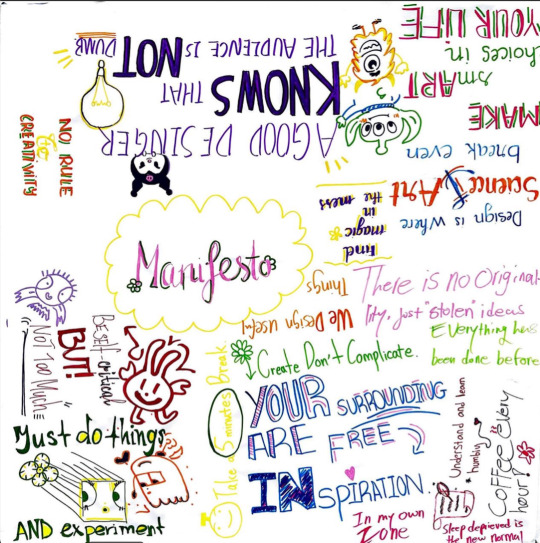 Manifesto
A GOOD DESINGER
KNOWS THAT
THE AUDIENCE IS NOT
DUMB.
MAKE
smART
choices in
YOUR LIFE
Design is where
Science & Art
break even
find
magic
in
the mess
We Design Useful
Things
There is no Original-
lity, just "stolen" ideas
Everything has
been done before
Create Don't Complicate.
YOUR SURROUNDING
ARE FREE
INSPIRATION
In my own
Zone
Understand and learn
humbling
Coffee every
hour!
Sleep deprieved is
the new normal
Take a 5 minutes Break
NO RULE
for
CREATIVITY
Be self-critical
BUT!
NOT TOO MUCH
Just do things
AND experiment